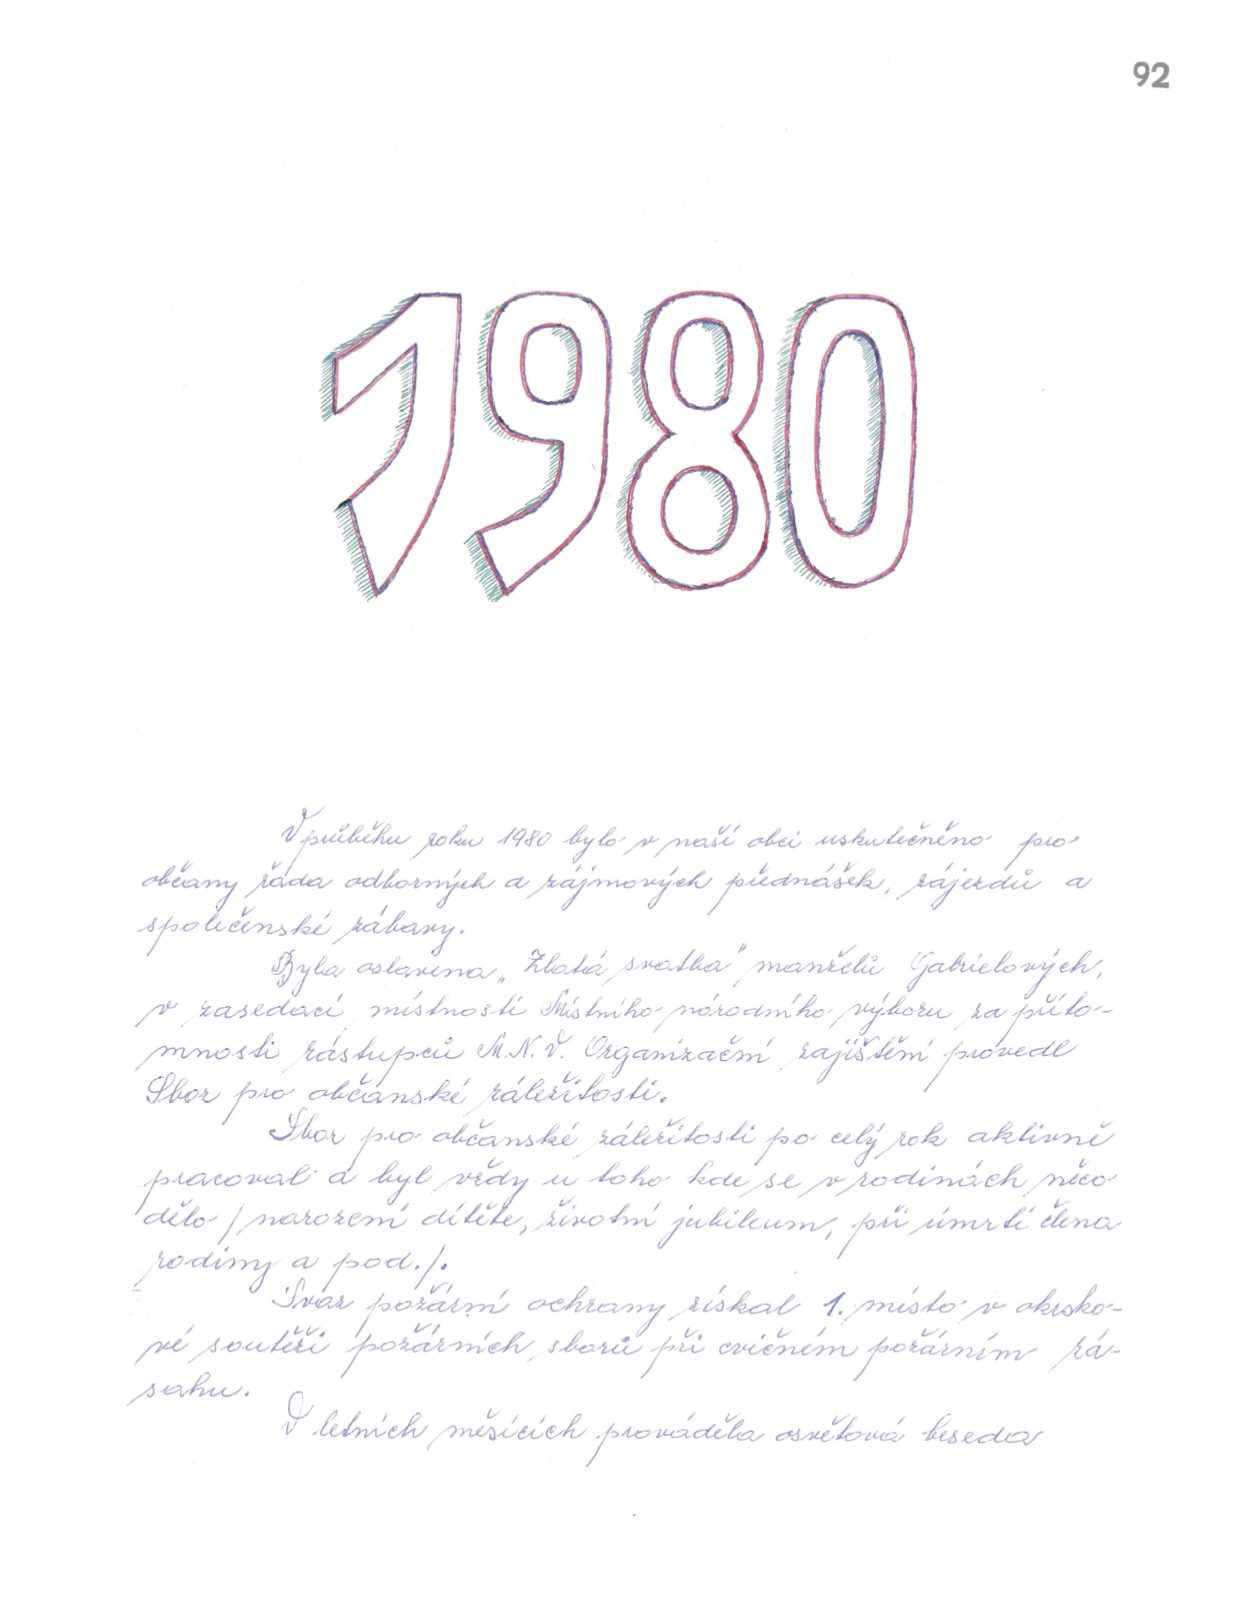 92
1980
V průběhu roku 1980 bylo v naší obci uskutečněno pro
občany řada odborných a zájmových přednášek, zájezdů a
společenské zábavy.
Byla oslavena „Zlatá svatba" manželů Gabrielových,
v zasedací místnosti Místního národního výboru za příto-
mnosti zástupců M.N.V. Organizační zajištění provedl
Sbor pro občanské záležitosti.
Sbor pro občanské záležitosti po celý rok aktivně
pracoval a byl vždy u toho kde se v rodinách něco
dělo / narození dítěte, životní jubileum, při úmrtí člena
rodiny a pod./.
Svaz požární ochrany získal 1. místo v okrsko-
vé soutěži požárních sborů při cvičném požárním zá-
sahu.
V letních měsících prováděla osvětová beseda